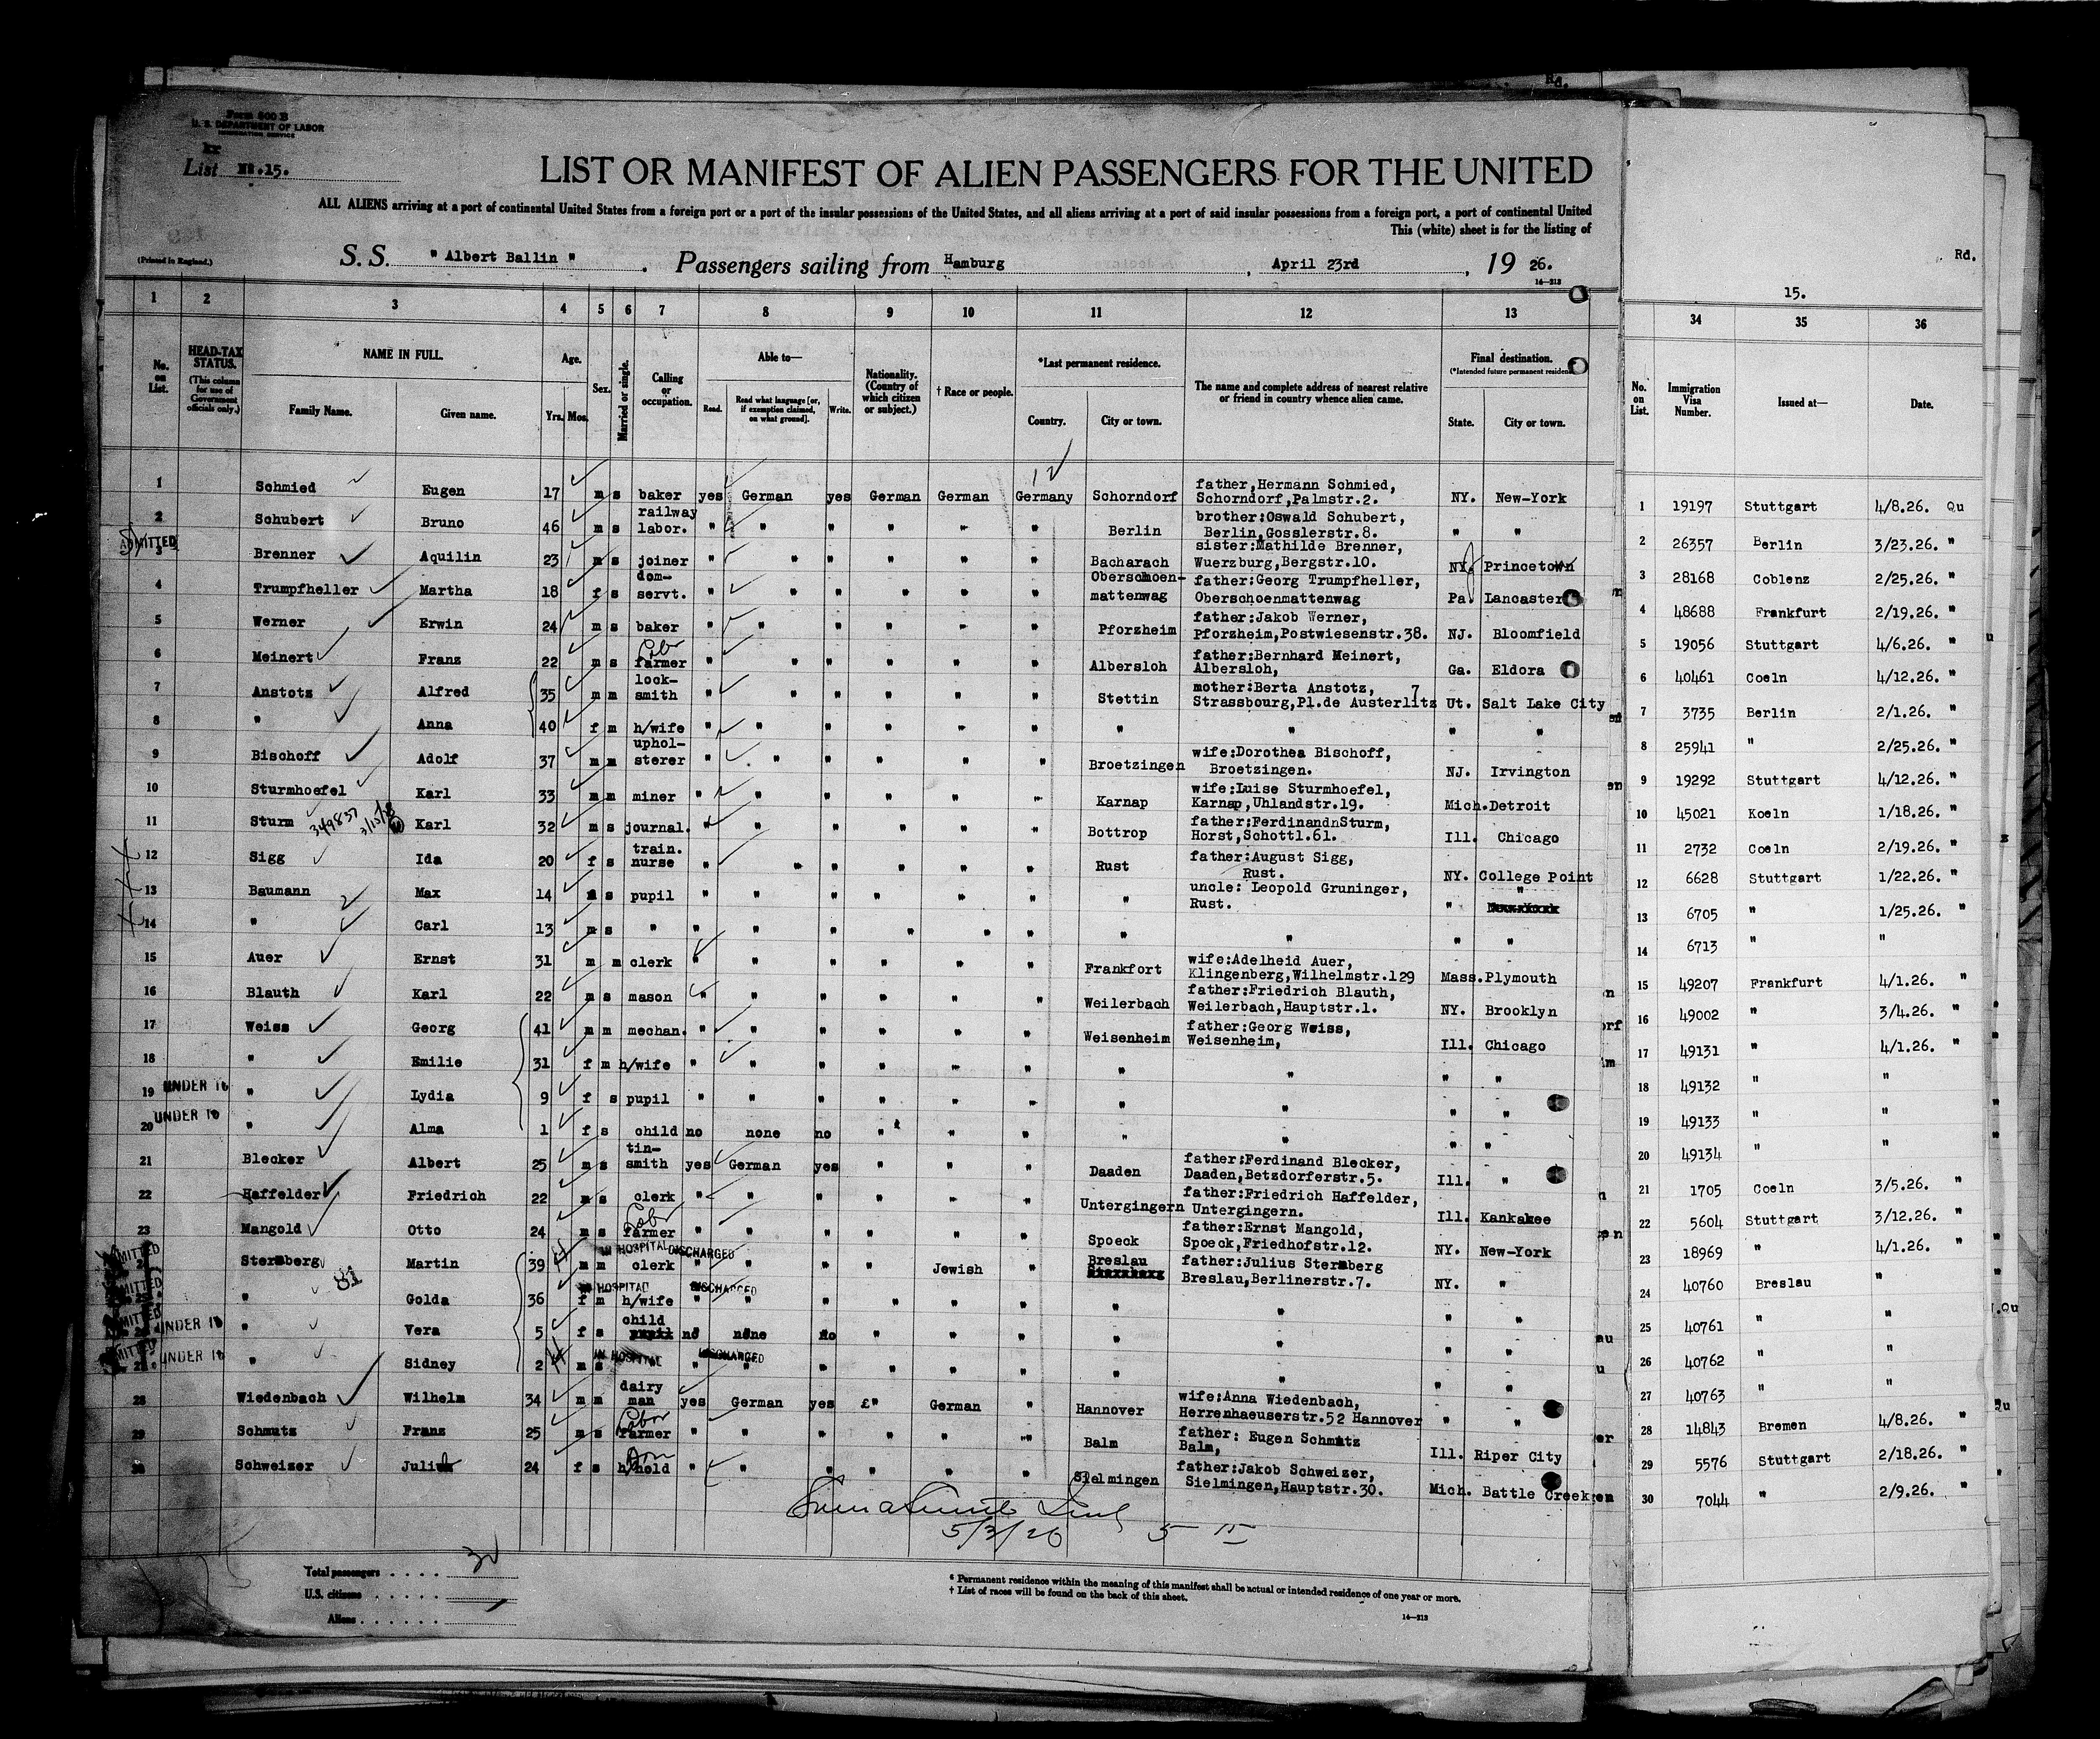 Rd.
Form 500 B
U. S. DEPARTMENT OF LABOR
IMMIGRATION SERVICE
kr
List No.15.
LIST OR MANIFEST OF ALIEN PASSENGERS FOR THE UNITED
ALL ALIENS arriving at a port of continental United States from a foreign port or a port of the insular possessions of the United States, and all aliens arriving at a port of said insular possessions from a foreign port, a port of continental United
This (white) sheet is for the listing of
(Printed in England.)
S. S. " Albert Ballin " . Passengers sailing from Hamburg , April 23rd , 19 26.
14—213
1 2 3 4 5 6 7 8 9 10 11 12 13
No. on List. HEAD-TAX STATUS. (This column for use of Government officials only.) NAME IN FULL. Family Name. Given name. Age. Yrs. Mos. Sex. Married or single. Calling or occupation. Able to— Read. Read what language [or, if exemption claimed, on what ground]. Write. Nationality. (Country of which citizen or subject.) † Race or people. *Last permanent residence. Country. City or town. The name and complete address of nearest relative or friend in country whence alien came. Final destination. (*Intended future permanent residence) State. City or town.
12
1 Schmied Eugen 17 m s baker yes German yes German German Germany Schorndorf father,Hermann Schmied, Schorndorf,Palmstr.2. NY. New-York
2 Schubert Bruno 46 m s railway labor. " " " " " " Berlin brother:Oswald Schubert, Berlin,Gosslerstr.8. " "
ADMITTED
3 Brenner Aquilin 23 m s joiner " " " " " " Bacharach sister:Mathilde Brenner, Wuerzburg,Bergstr.10. NY. Princetown
4 Trumpfheller Martha 18 f s dom- servt. " " " " " " Oberschoen- mattenwag father:Georg Trumpfheller, Oberschoenmattenwag Pa. Lancaster
5 Werner Erwin 24 m s baker " " " " " " Pforzheim father:Jakob Werner, Pforzheim,Postwiesenstr.38. NJ. Bloomfield
6 Meinert Franz 22 m s farmer " " " " " " Albersloh father:Bernhard Meinert, Albersloh, Ga. Eldora
7 Anstotz Alfred 35 m m lock- smith " " " " " " Stettin mother:Berta Anstotz, 7 Strassbourg,Pl.de Austerlitz Ut. Salt Lake City
8 " Anna 40 f m h/wife " " " " " " " " " "
9 Bischoff Adolf 37 m m uphol- sterer " " " " " " Broetzingen wife:Dorothea Bischoff, Broetzingen. NJ. Irvington
10 Sturmhoefel Karl 33 m m miner " " " " " " Karnap wife:Luise Sturmhoefel, Karnap,Uhlandstr.19. Mich. Detroit
11 Sturm 349837 3/15/28 Karl 32 m s journal. " " " " " " Bottrop father:FerdinandnSturm, Horst,Schottl.61. Ill. Chicago
12 Sigg Ida 20 f s train. nurse " " " " " " Rust father:August Sigg, Rust. NY. College Point
13 Baumann Max 14 m s pupil " " " " " " " uncle: Leopold Gruninger, Rust. " "
14 " Carl 13 m s " " " " " " " " " " "
15 Auer Ernst 31 m m clerk " " " " " " Frankfort wife:Adelheid Auer, Klingenberg,Wilhelmstr.129 Mass. Plymouth
16 Blauth Karl 22 m s mason " " " " " " Weilerbach father:Friedrich Blauth, Weilerbach,Hauptstr.1. NY. Brooklyn
17 Weiss Georg 41 m m mechan. " " " " " " Weisenheim father:Georg Weiss, Weisenheim, Ill. Chicago
18 " Emilie 31 f m h/wife " " " " " " " " " "
19 UNDER 16 " Lydia 9 f s pupil " " " " " " " " " "
20 UNDER 16 " Alma 1 f s child no none no " " " " " " "
21 Blecker Albert 25 m s tin- smith yes German yes " " " Daaden father:Ferdinand Blecker, Daaden,Betzdorferstr.5. Ill. "
22 Haffelder Friedrich 22 m s clerk " " " " " " Untergingern father:Friedrich Haffelder, Untergingern. Ill. Kankakee
23 Mangold Otto 24 m s farmer " " " " " " Spoeck father:Ernst Mangold, Spoeck,Friedhofstr.12. NY. New-York
IN HOSPITAL DISCHARGED
ADMITTED Sternberg 81 Martin 39 m m clerk " " " " Jewish " Breslau father:Julius Sternberg Breslau,Berlinerstr.7. NY. "
IN HOSPITAL DISCHARGED
ADMITTED " Golda 36 f m h/wife " " " " " " " " " "
ADMITTED UNDER 16 " Vera 5 f s child no none no " " " " " " "
ADMITTED UNDER 16 " Sidney 2 m s IN HOSPITAL DISCHARGED " " " " " " " " " "
28 Wiedenbach Wilhelm 34 m m dairy man yes German yes " German " Hannover wife:Anna Wiedenbach, Herrenhaeuserstr.52 Hannover " "
29 Schmutz Franz 25 m s farmer Labor " " " " " " Balm father: Eugen Schmutz Balm, Ill. Riper City
30 Schweizer Julie 24 f s h/hold Dom " " " " " " Sielmingen father:Jakob Schweizer, Sielmingen,Hauptstr.30. Mich. Battle Creek
5/3/26
Total passengers . . . . 30
U.S. citizens . . . . .
Aliens . . . . . .
* Permanent residence within the meaning of this manifest shall be actual or intended residence of one year or more.
† List of races will be found on the back of this sheet.
14—213
Rd.
15.
34 35 36
No. on List. Immigration Visa Number. Issued at— Date.
1 19197 Stuttgart 4/8.26. Qu
2 26357 Berlin 3/23.26. "
3 28168 Coblenz 2/25.26. "
4 48688 Frankfurt 2/19.26. "
5 19056 Stuttgart 4/6.26. "
6 40461 Coeln 4/12.26. "
7 3735 Berlin 2/1.26. "
8 25941 " 2/25.26. "
9 19292 Stuttgart 4/12.26. "
10 45021 Koeln 1/18.26. "
11 2732 Coeln 2/19.26. "
12 6628 Stuttgart 1/22.26. "
13 6705 " 1/25.26. "
14 6713 " "
15 49207 Frankfurt 4/1.26. "
16 49002 " 3/4.26. "
17 49131 " 4/1.26. "
18 49132 " "
19 49133 " "
20 49134 " "
21 1705 Coeln 3/5.26. "
22 5604 Stuttgart 3/12.26. "
23 18969 " 4/1.26. "
24 40760 Breslau "
25 40761 " "
26 40762 " "
27 40763 " "
28 14843 Bremen 4/8.26. "
29 5576 Stuttgart 2/18.26. "
30 7044 " 2/9.26. "